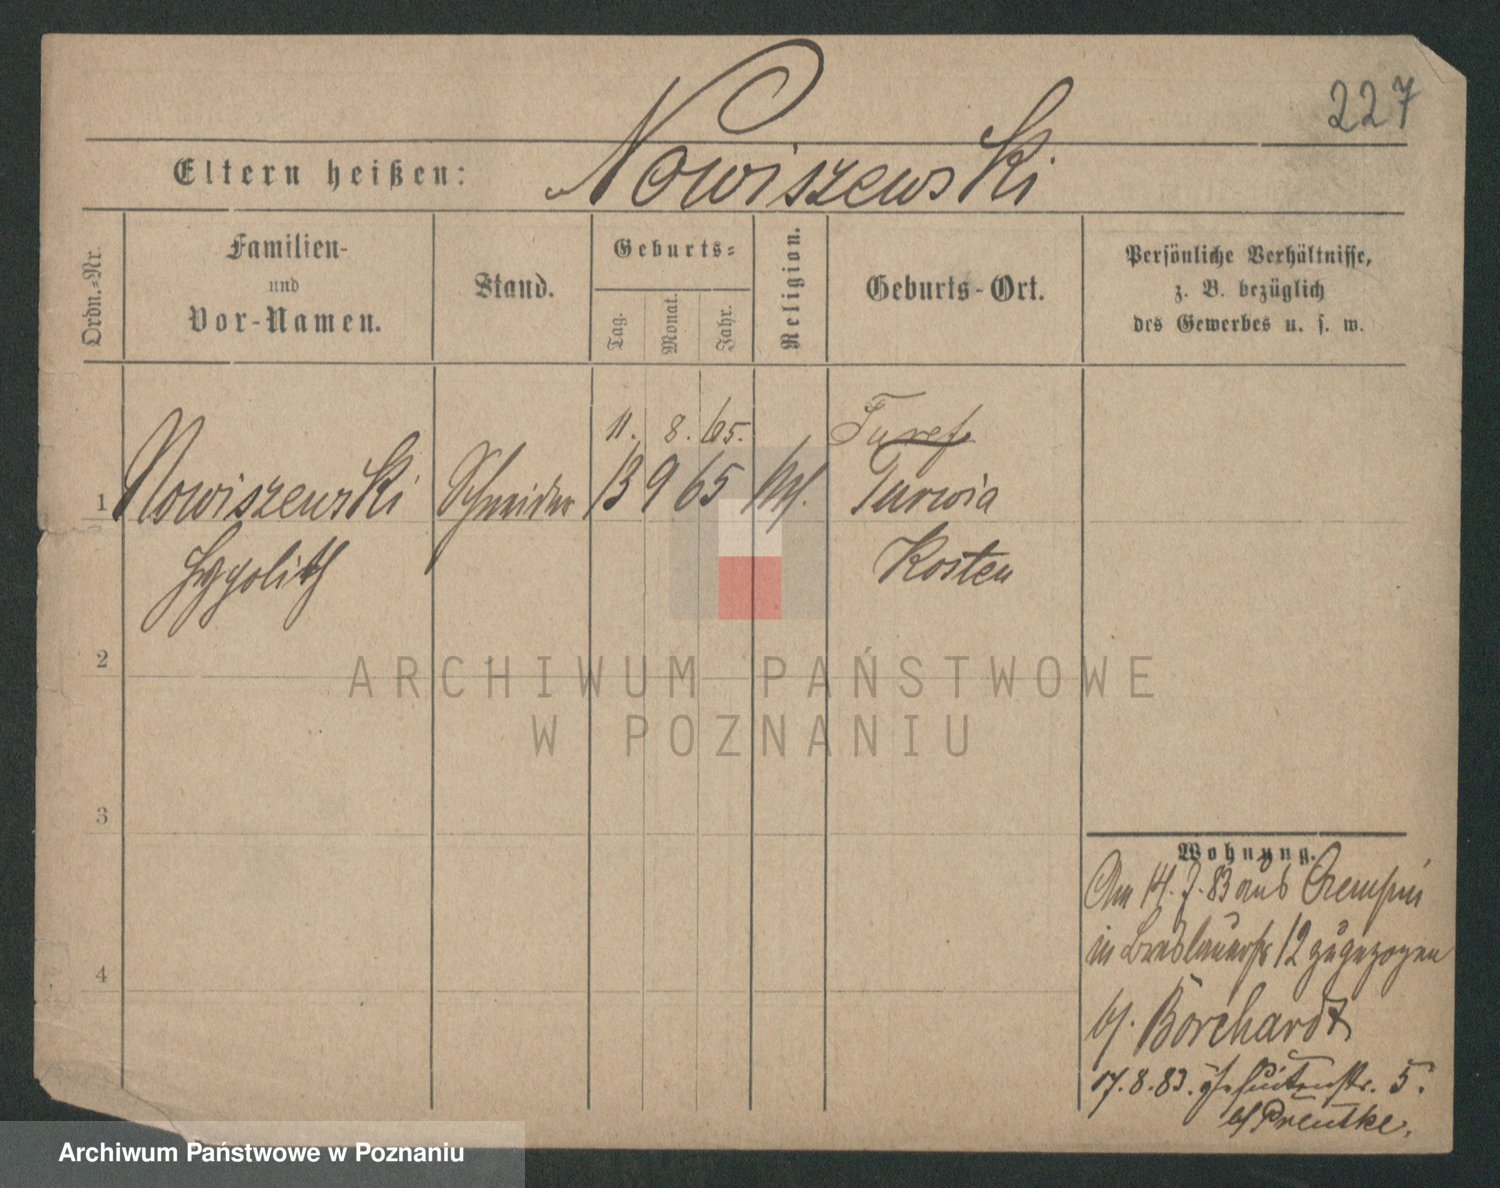 227
Nowiszewski
Eltern heißen:
Ordn.-Nr.
Familien-
und
Vor-Namen.
Stand.
Geburts-
Tag.
Monat.
Jahr.
Religion.
Geburts-Ort.
Persönliche Verhältnisse,
z. B. bezüglich
des Gewerbes u. s. w.
11. 8. 65.
1 Nowiszewski Schneider 13 9 65 kth. Turwia
Hypolith Kosten
2
3
4
Wohnung.
Am 14. 7. 83 aus Czempin
in Breslauerstr 12 zugezogen
b/. Borchardt
17. 8. 83. Jesuitenstr. 5.
b/ Preuske.
ARCHIWUM PAŃSTWOWE
W POZNANIU
Archiwum Państwowe w Poznaniu